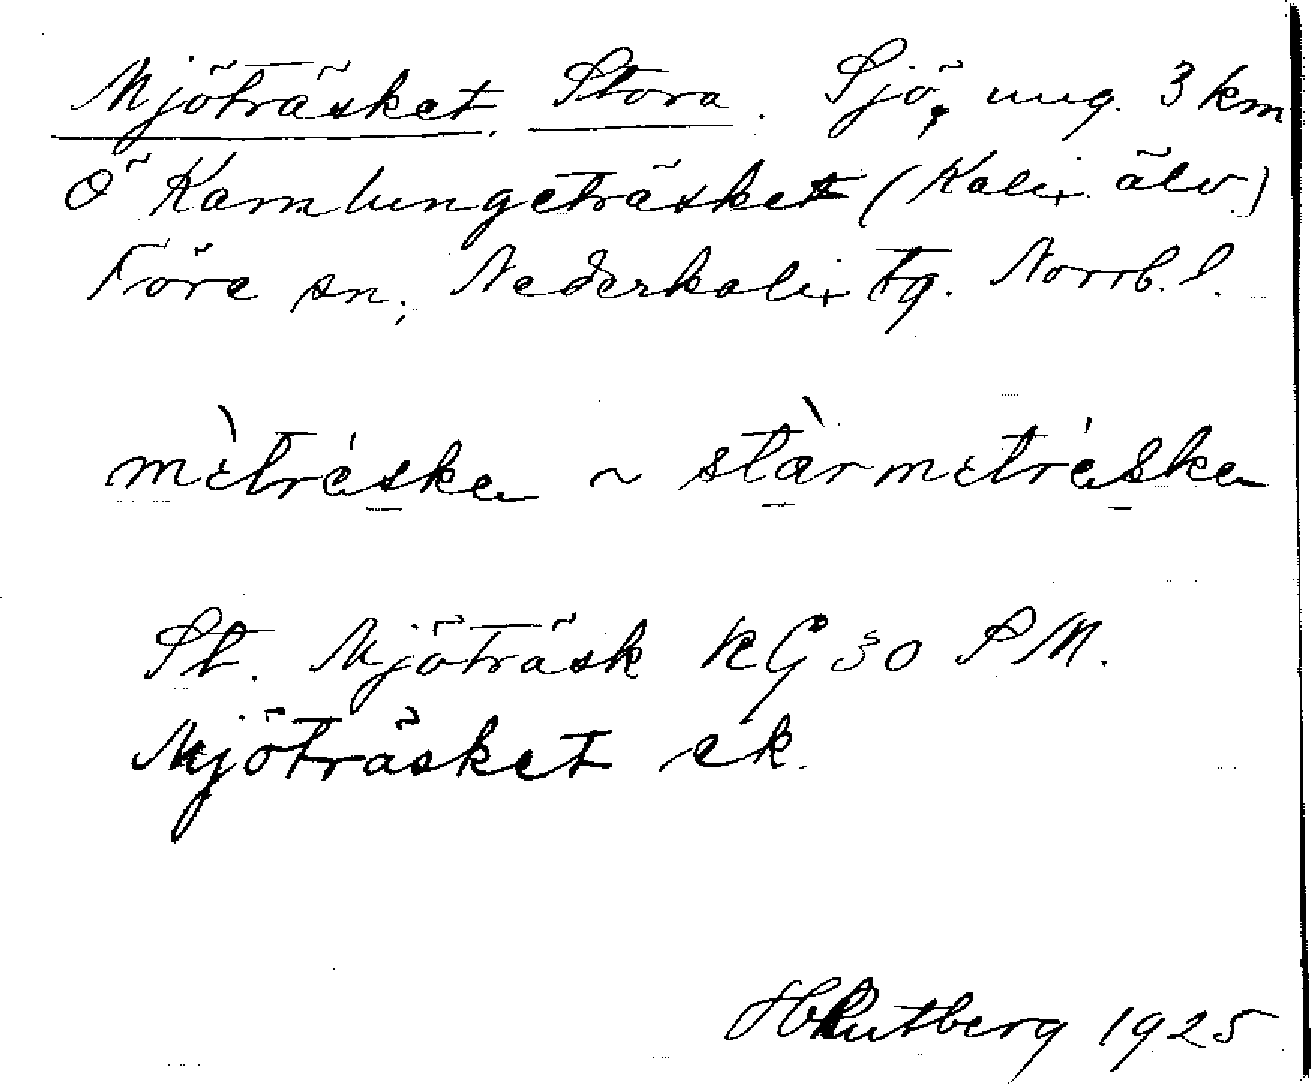 Mjöträsket, Stora. Sjö, ung. 3 km
Ö Kamlungeträsket (Kalix älv.)
Töre sn, Nederkalix tg. Norrb. l.
mètráska ~ stàrmetráska
St. Mjöträsk RG 30 SM.
Mjöträsket ek.
H Rutberg 1925